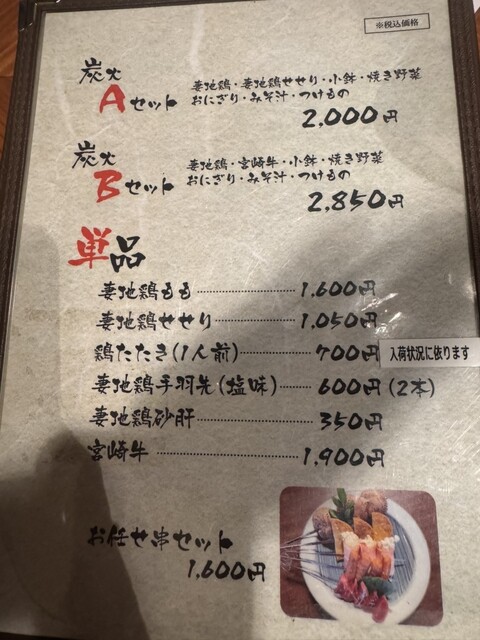 ※税込価格
炭火
Aセット
妻地鶏・妻地鶏せせり・小鉢・焼き野菜
おにぎり・みそ汁・つけもの
2,000円
炭火
Bセット
妻地鶏・宮崎牛・小鉢・焼き野菜
おにぎり・みそ汁・つけもの
2,850円
単品
妻地鶏もも……………………1,600円
妻地鶏せせり…………………1,050円
鶏たたき(1人前)……………700円 入荷状況に依ります
妻地鶏手羽先(塩味)……600円(2本)
妻地鶏砂肝……………………350円
宮崎牛…………………………1,900円
お任せ串セット
1,600円